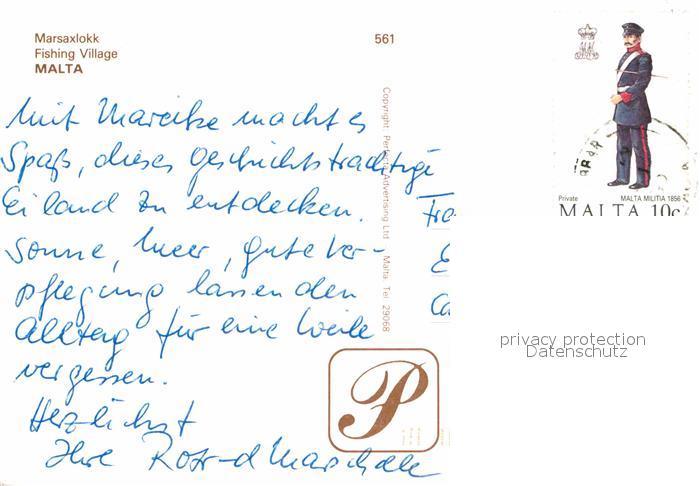 Marsaxlokk
Fishing Village
MALTA
561
Mit Mareike macht es
Spaß, dieses geschichtsträchtige
Eiland zu entdecken.
Sonne, Meer, gute Ver-
pflegung lassen den
Alltag für eine Weile
vergessen.
Herzlichst
Ihre
Copyright: Perfecta Advertising Ltd. Malta Tel: 29068
P
Private MALTA MILITIA 1856
MALTA 10c
Fra
E
Ca
privacy protection
Datenschutz